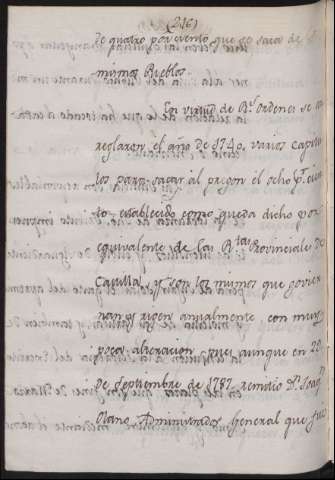 (216)
de quatro por ciento que se saca de los
mismos Pueblos.
En virtud de Rs. ordenes se a
reglaron el año de 1740, varios capitu
los para sacar al pregon el ocho pr. cien
to establecido como queda dicho por
equivalente de las Rtas. Provinciales de
Castilla, y son los mismos que govier
nan y rigen anualmente con muy
poca alteracion, pues aunque en 20
de Septiembre de 1787. remitio Dn. Joaqn.
Olano Administrador General que fue